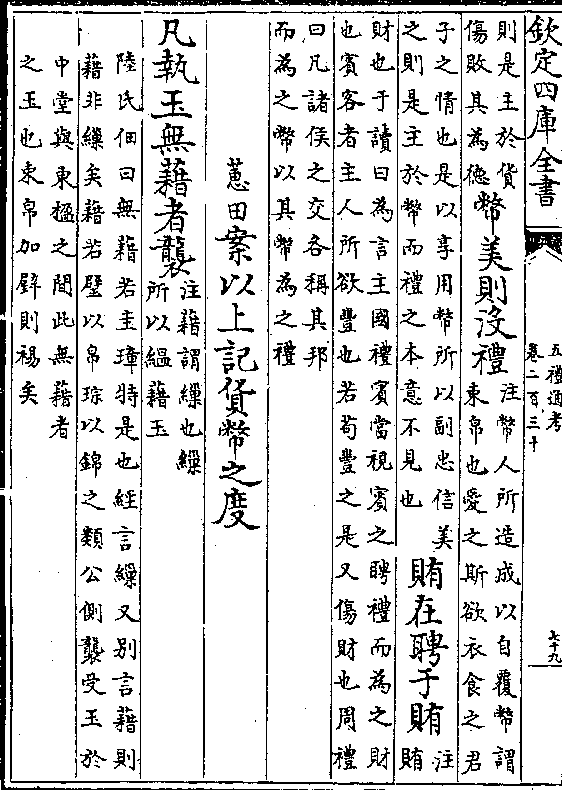 欽定四庫全書
五禮通考
卷二百三十
七十九
則是主於貨
傷敗其為德
幣美則沒禮
注幣人所造成以自覆幣謂
束帛也愛之斯欲衣食之君
子之情也是以享用幣所以副忠信美
之則是主於幣而禮之本意不見也
賄在聘于賄
注
賄
財也于讀曰為言主國禮賓當視賓之聘禮而為之財
也賓客者主人所欲豐也若苟豐之是又傷財也周禮
曰凡諸侯之交各稱其邦
而為之幣以其幣為之禮
蕙田案以上記貨幣之度
凡執玉無藉者襲
注藉謂繅也繅
所以縕藉玉
陸氏佃曰無藉若圭璋特是也經言繅又別言藉則
藉非繅矣藉若璧以帛琮以錦之類公側襲受玉於
中堂與東楹之間此無藉者
之玉也束帛加璧則裼矣